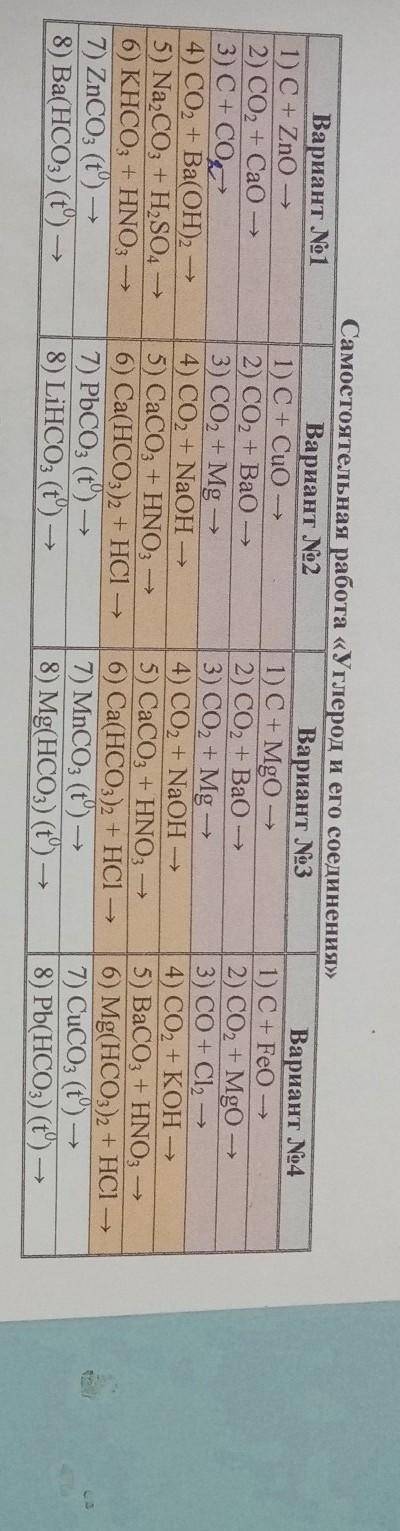 Самостоятельная работа «Углерод и его соединения»
Вариант №1 Вариант №2 Вариант №3 Вариант №4
1) C + ZnO → 1) C + CuO → 1) C + MgO → 1) C + FeO →
2) CO₂ + CaO → 2) CO₂ + BaO → 2) CO₂ + BaO → 2) CO₂ + MgO →
3) C + CO₂ → 3) CO₂ + Mg → 3) CO₂ + Mg → 3) CO + Cl₂ →
4) CO₂ + Ba(OH)₂ → 4) CO₂ + NaOH → 4) CO₂ + NaOH → 4) CO₂ + KOH →
5) Na₂CO₃ + H₂SO₄ → 5) CaCO₃ + HNO₃ → 5) CaCO₃ + HNO₃ → 5) BaCO₃ + HNO₃ →
6) KHCO₃ + HNO₃ → 6) Ca(HCO₃)₂ + HCl → 6) Ca(HCO₃)₂ + HCl → 6) Mg(HCO₃)₂ + HCl →
7) ZnCO₃ (t⁰) → 7) PbCO₃ (t⁰) → 7) MnCO₃ (t⁰) → 7) CuCO₃ (t⁰) →
8) Ba(HCO₃) (t⁰) → 8) LiHCO₃ (t⁰) → 8) Mg(HCO₃) (t⁰) → 8) Pb(HCO₃) (t⁰) →